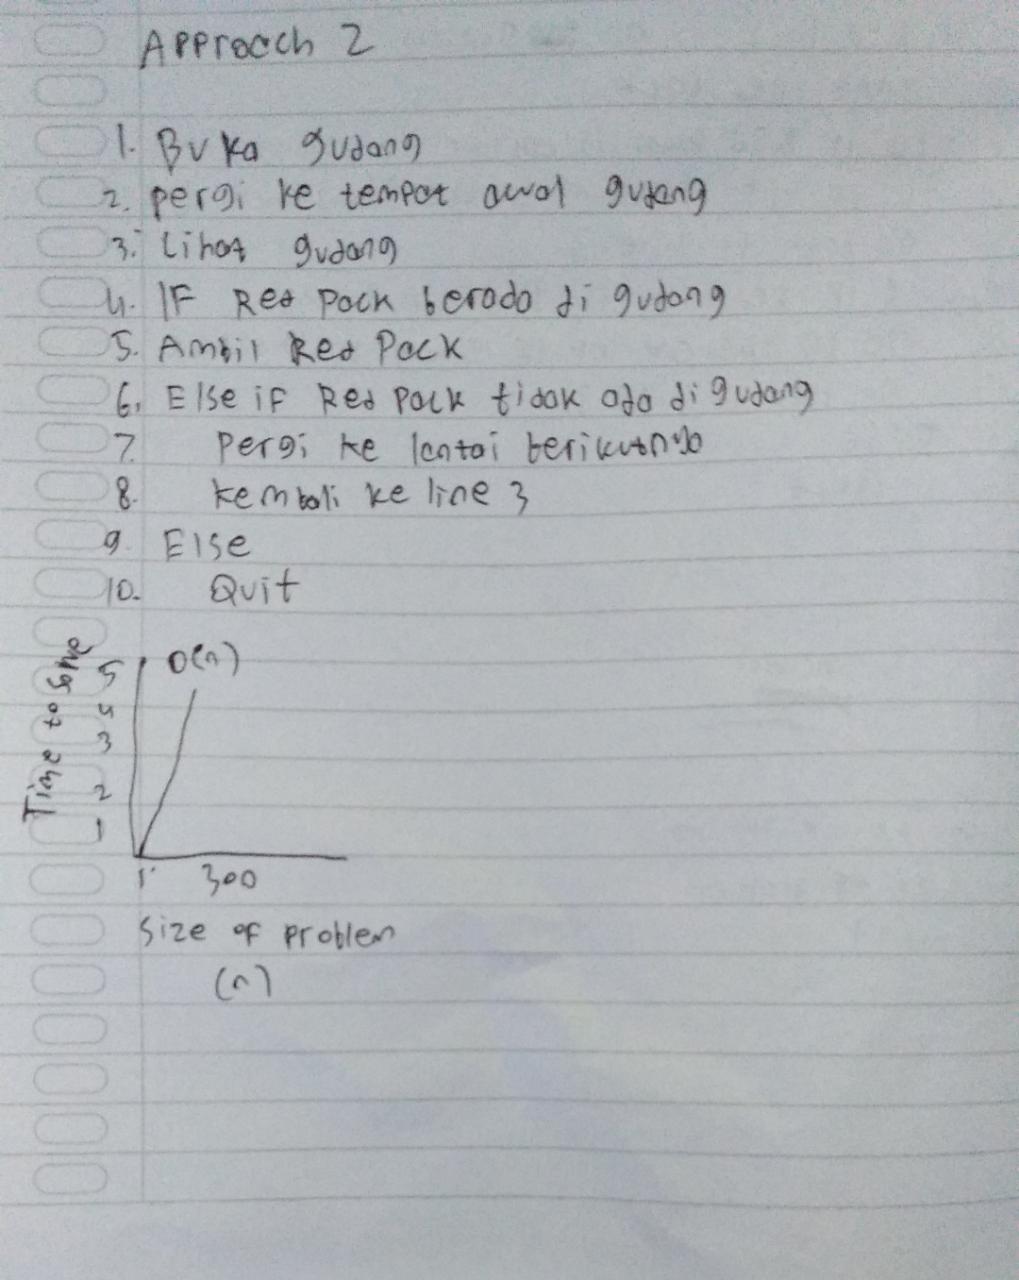 Approach 2
1. Buka gudang
2. pergi ke tempat awal gudang
3. Lihat gudang
4. IF Red Pack berada di gudang
5. Ambil Red Pack
6. Else if Red Pack tidak ada di gudang
7. Pergi ke lantai berikutnya
8. kembali ke line 3
9. Else
10. Quit
Time to solve
5
4
3
2
1
O(n)
1 300
Size of problem
(n)